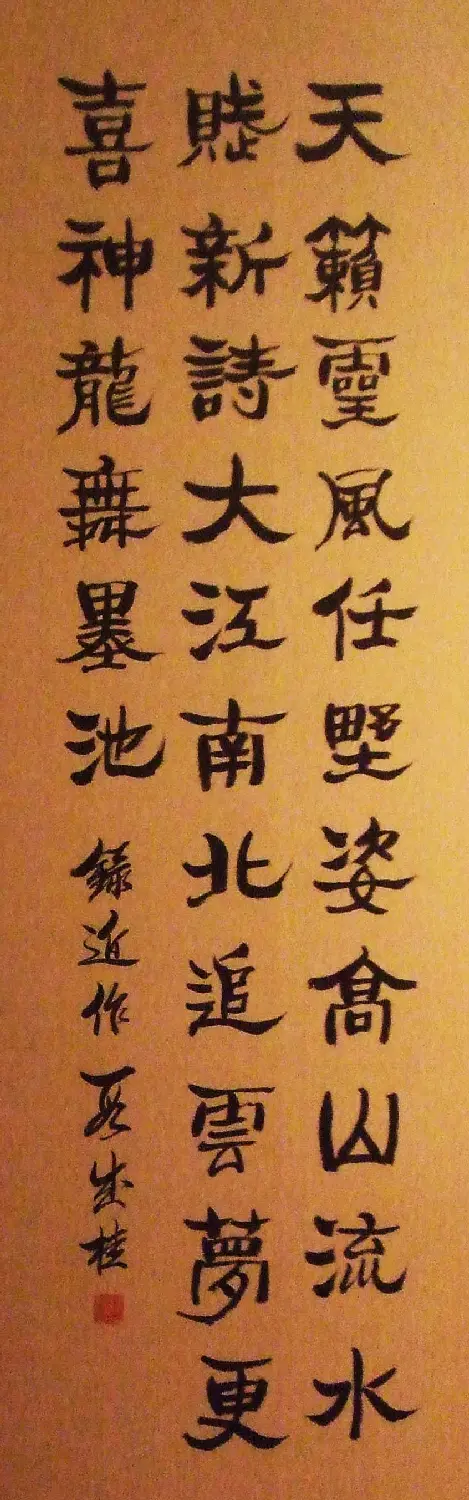 天籟靈風任野姿髙山流水
賦新詩大江南北追雲夢更
喜神龍舞墨池 錄近作 成桂